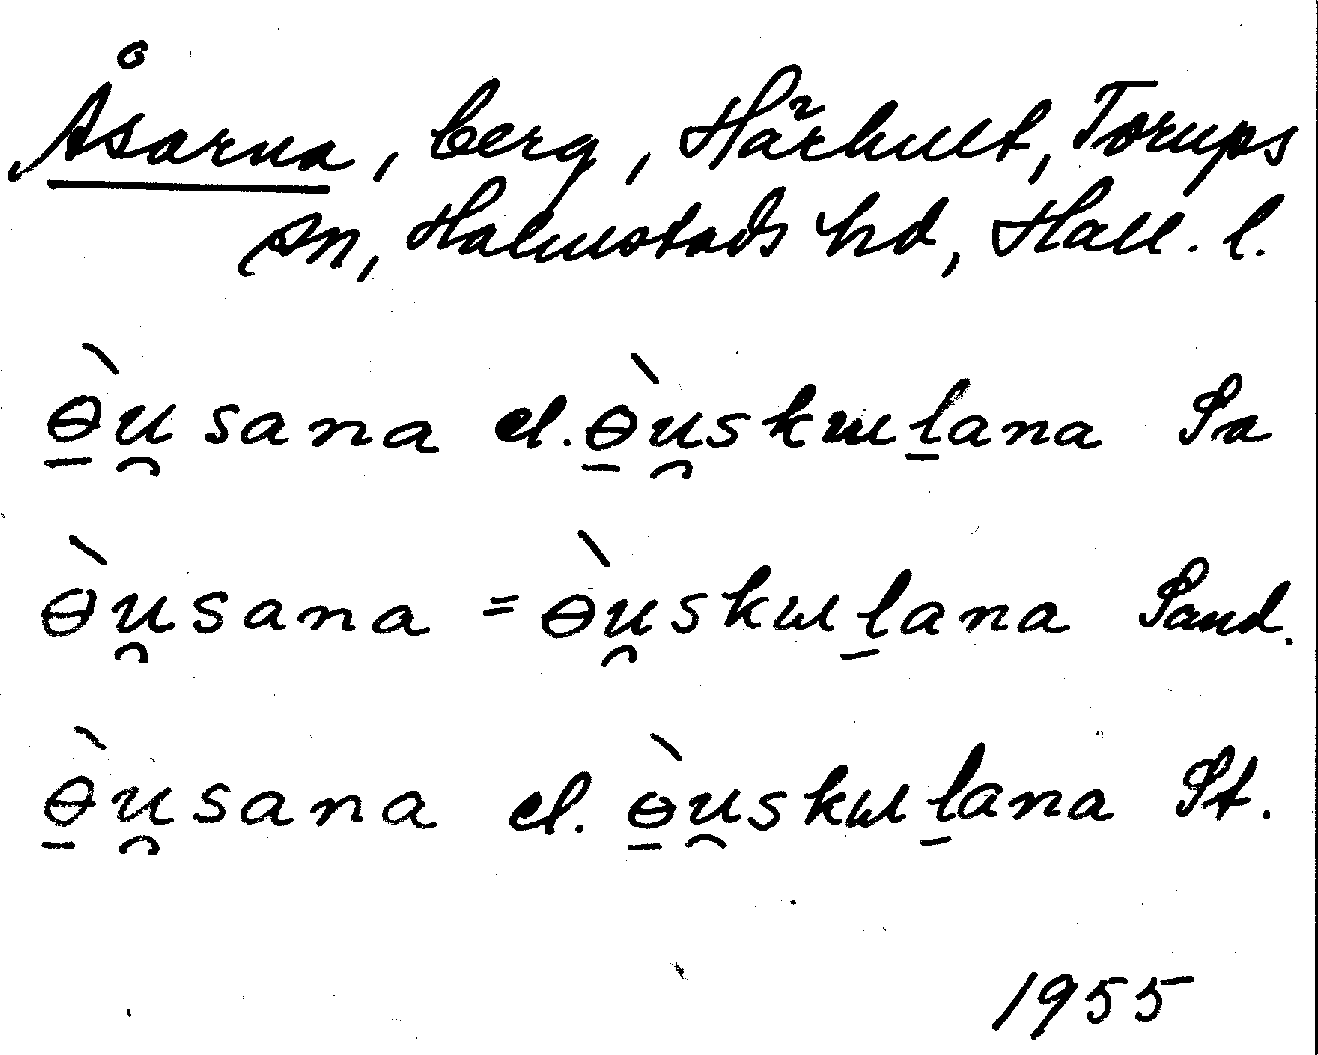 Åsarna, berg, Härhult, Torups
sn, Halmstads hd, Hall. l.
ɵ̠̀u̯sana el. ɵ̠̀u̯skɯḻana Sa
ɵ̀u̯sana = ɵ̀u̯skɯḻana Sand.
ɵ̠̀u̯sana el. ɵ̠̀u̯skɯḻana St.
1955